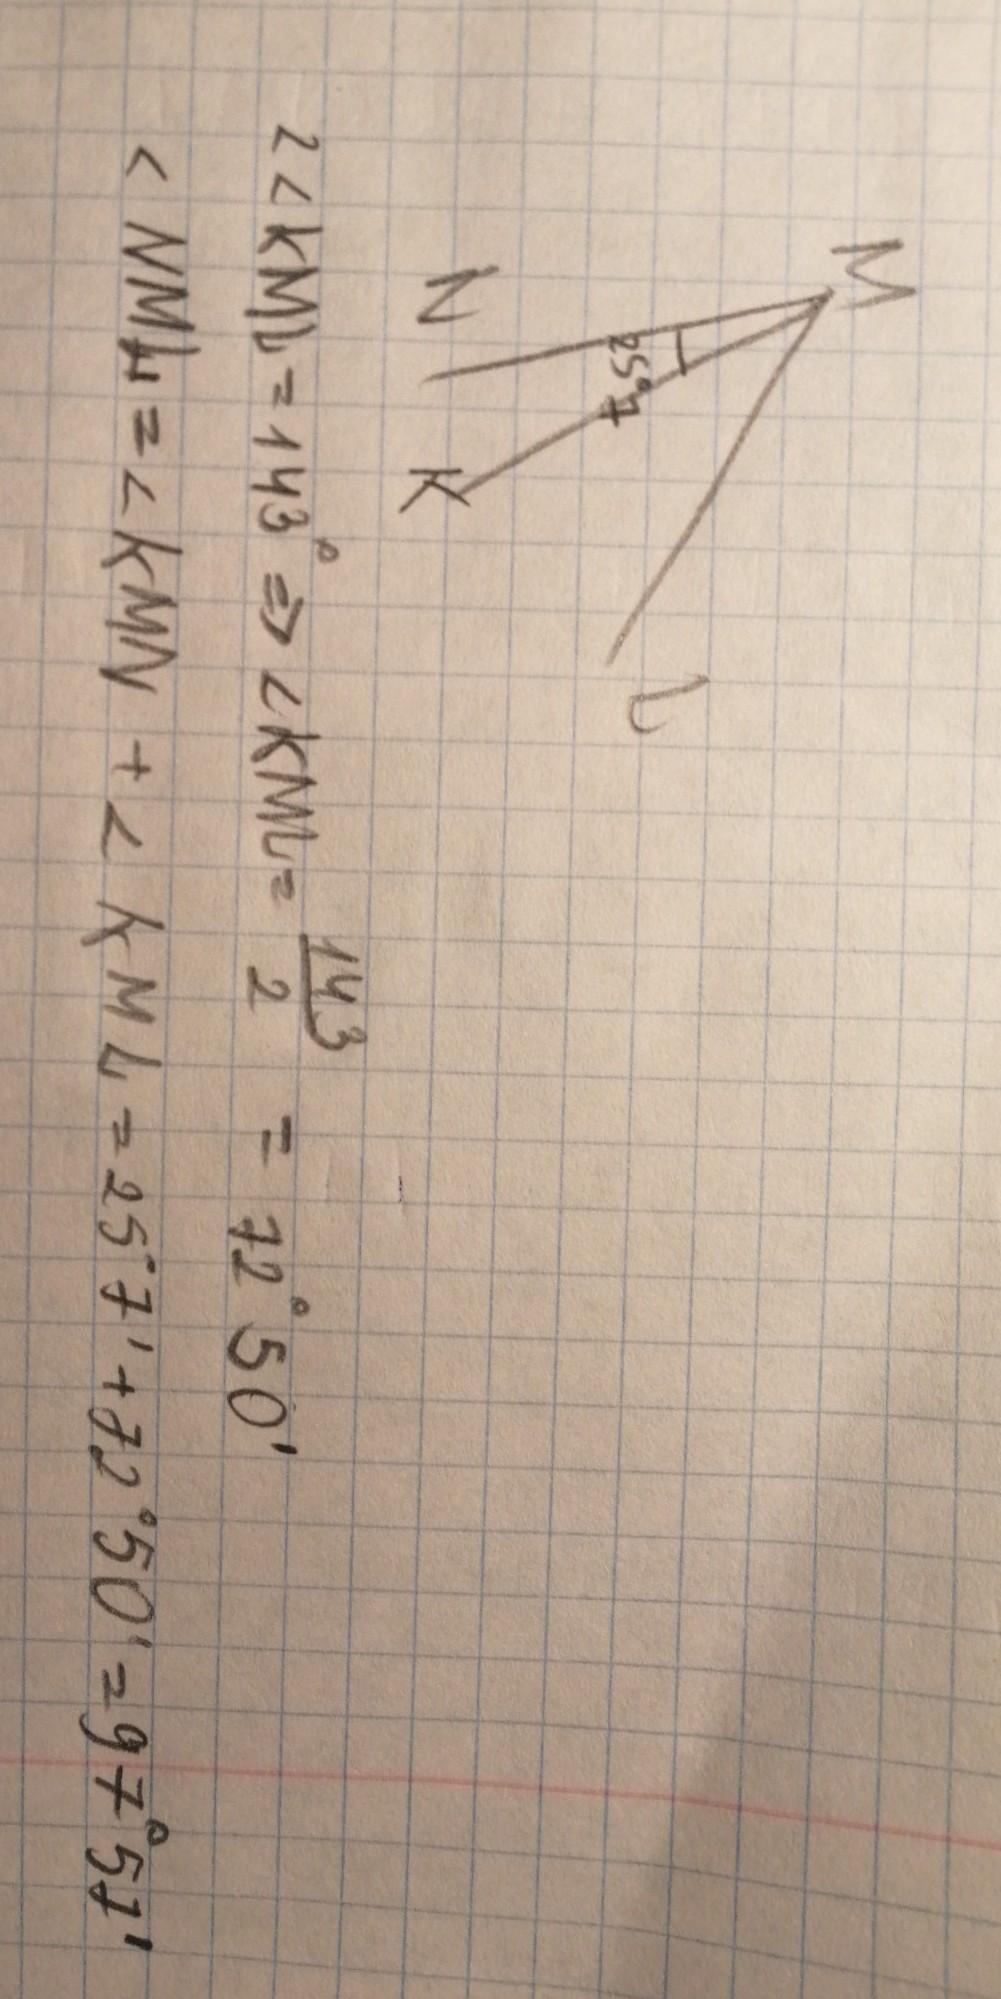 M
25°7
N
K
L
2<KML = 143° => <KML = 143/2 = 72°50'
<NML = <KMN + < KML = 25°7' + 72°50' = 97°57'